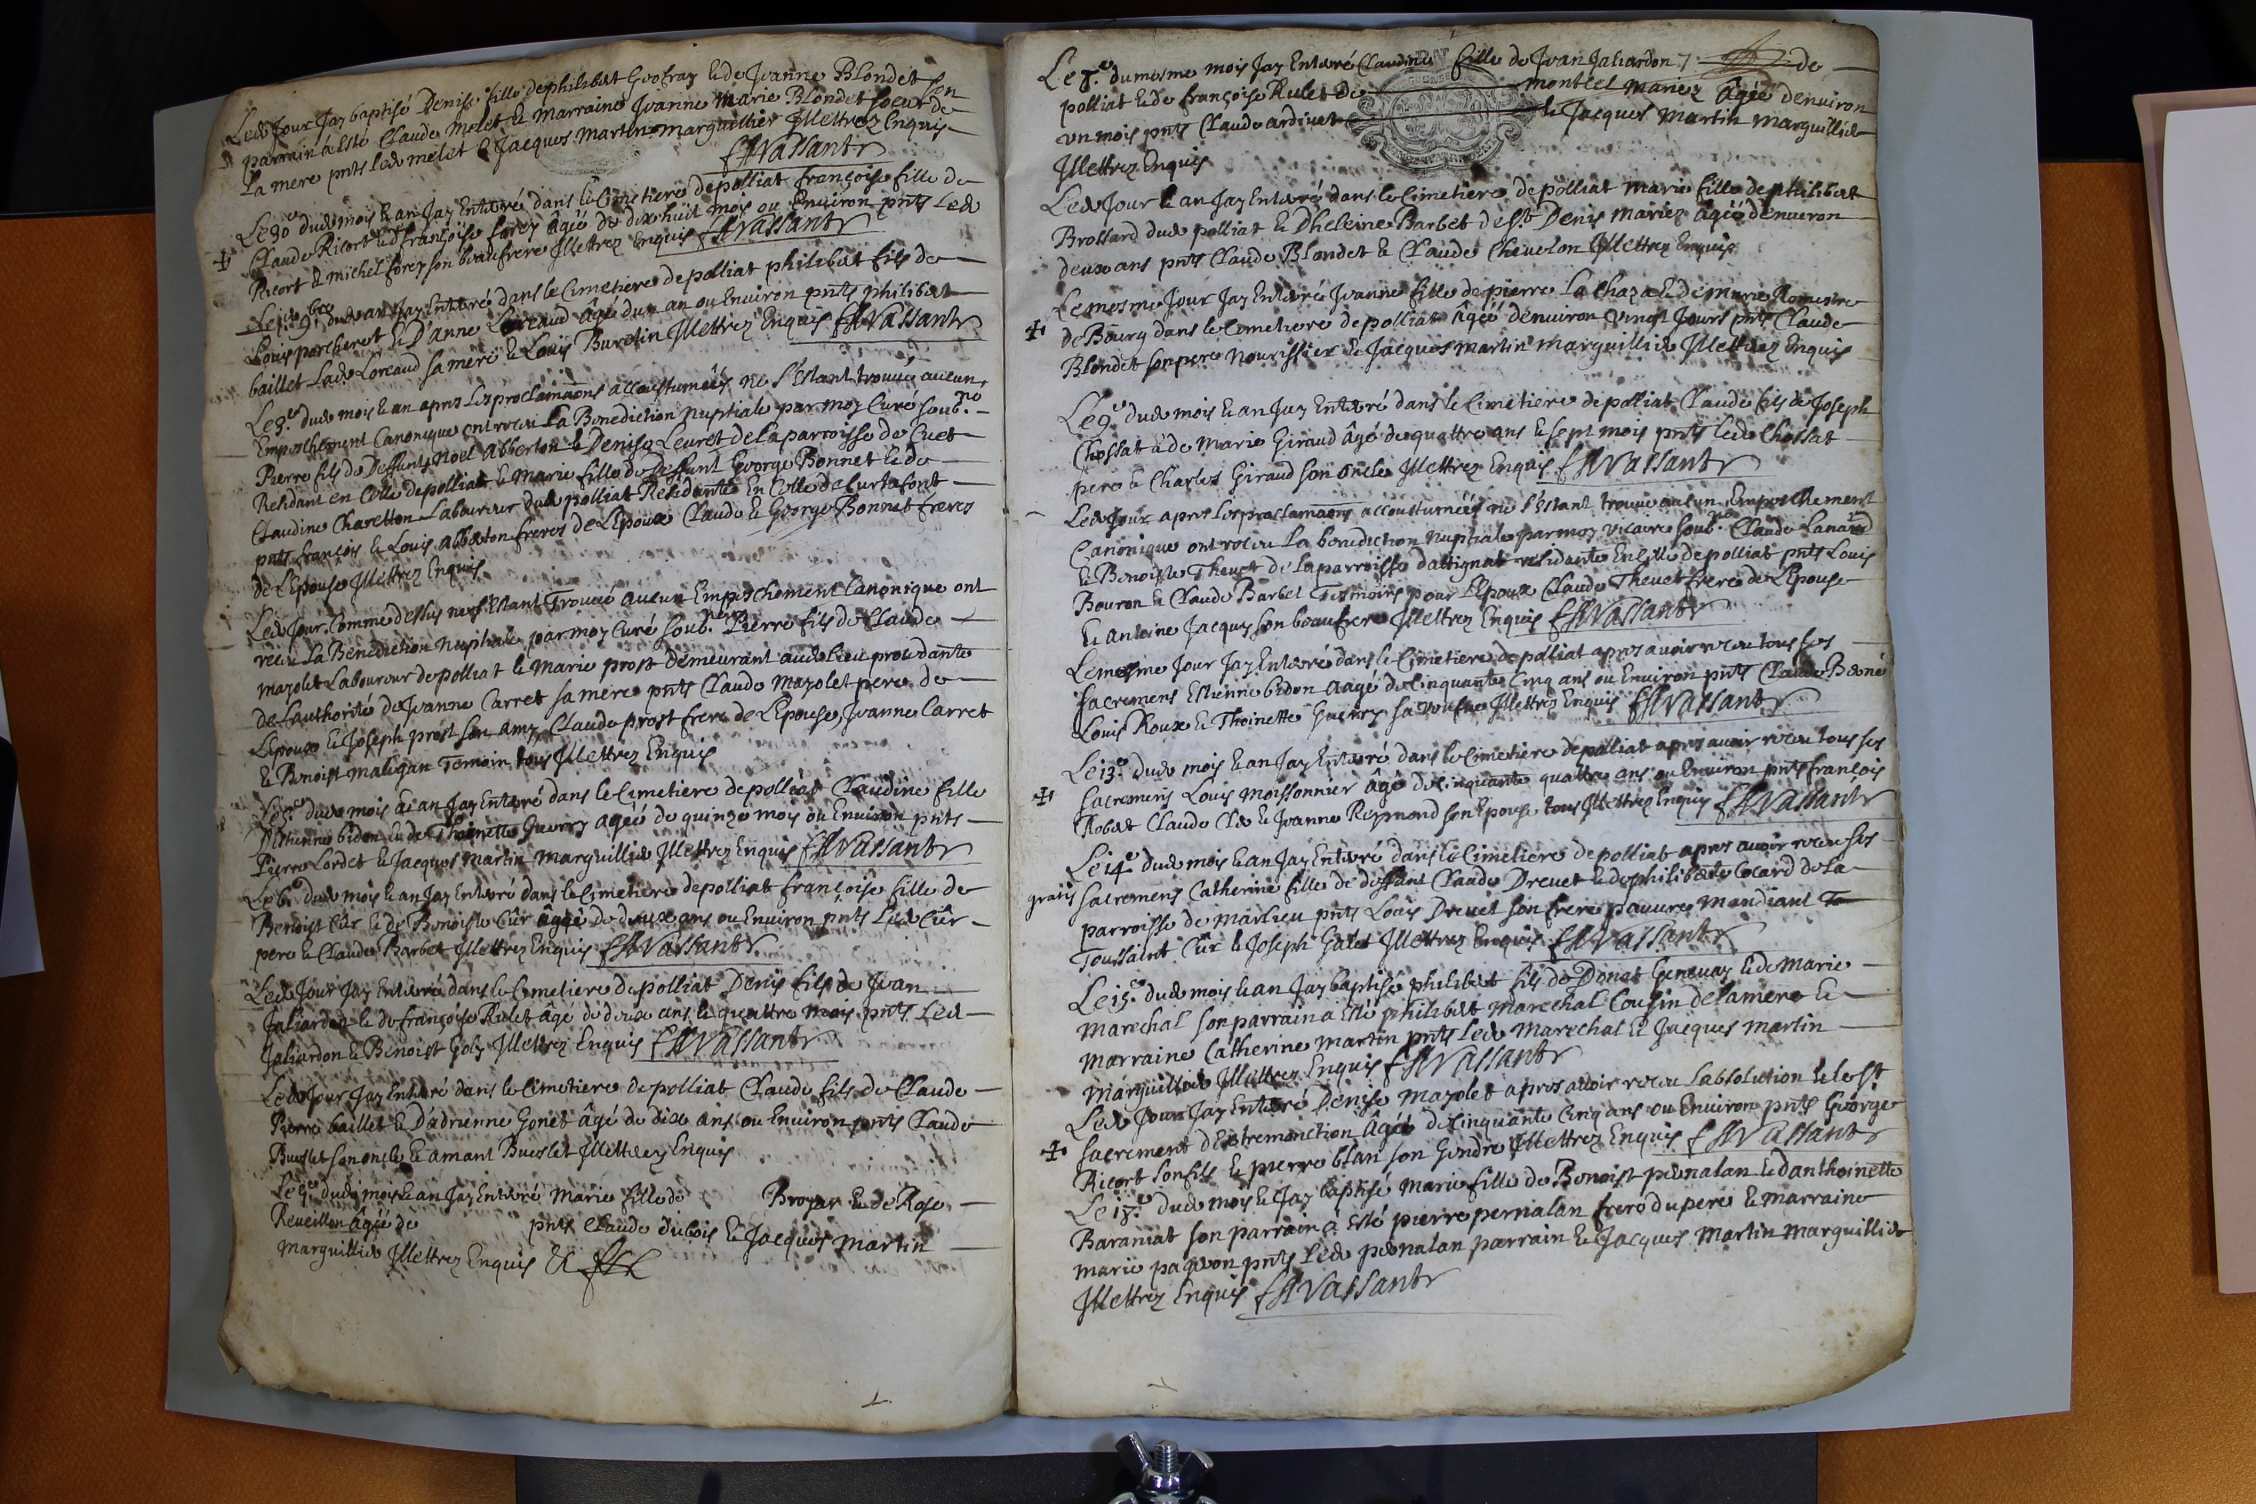 Led. Jour Jay baptisé Denise fille de philibert Geofray & de Jeanne Blondet son
parrain a esté Claude Melet & Marraine Jeanne Marie Blondet soeur de
La mere pnts led. melet & Jacques Martin marguillier Illettrez Enquis
Vassant
Le 30e dud. mois & an Jay Enterré dans le Cimetiere de polliat françoise fille de
Claude Ricort & de françoise forez âgée de dix huit mois ou Environ pnts Led.
Ricort & michel forez son beaufrere Illettrez Enquis Vassant
dud. an Jay Enterré dans le Cimetiere de polliat philibert fils de
Louis porcheret & D'anne Loreaud âgé dun an ou Environ pnts philibert
baillet Lad. Loreaud sa mere & Louis Buretin Illettrez Enquis Vassant
Le 3e dud. mois & an apres Les proclamaons accoustumées ne s'Estant trouvé aucun
Empeschement Canonique ont receu La Benediction nuptiale par moy Curé soub.né
Pierre fils de Deffunt Noel abberton & Denise Leuret de la parroisse de Cuet
Residant en Celle de polliat & Marie fille de Deffunt George Bonnet & de
Claudine Charetton Laboureur dud. polliat Residante En Celle de Curtafont
pnts françois & Louis abberton freres de L'Epoux Claude & George Bonnet freres
de L'Epouse Illettrez Enquis
Led. Jour Comme dessus ne s'Estant Trouvé aucun Empeschement Canonique ont
receu La Benediction Nuptiale par moy Curé soub.né Pierre fils de Claude
mazolet Laboureur de polliat & Marie prost demeurant aud. lieu procedante
de L'authorité de Jeanne Carret sa mere pnts Claude Mazolet pere de
L'epoux & Joseph prost son amy Claude prost frere de L'Epouse, Jeanne Carret
& Benoist maligan Temoin tous Illettrez Enquis
Le 5e dud. mois & an Jay Enterré dans le Cimetiere de polliat Claudine fille
D'Estienne bidon & de Thoinette Guerry agée de quinze mois ou Environ pnts
Pierre Lordet & Jacques Martin Marguillier Illettrez Enquis Vassant
Le 6e dud. mois & an Jay Enterré dans le Cimetiere de polliat françoise fille de
Benoist Cûr & de Benoiste Cûr âgée de deux ans ou Environ pnts Led. Cûr
pere & Claude Barbet Illettrez Enquis Vassant
Led. Jour Jay Enterré dans le Cimetiere de polliat Denis fils de Jean
Jaliardon & de françoise Rulet âgé de deux ans & quattre mois pnts Led.
Jaliardon & Benoist Goly Illettrez Enquis Vassant
Led. Jour Jay Enterré dans le Cimetiere de polliat Claude fils de Claude
Pierre baillet & D'adrienne Gonet âgé de dix ans ou Environ pnts Claude
Bueslet son oncle & amant Bueslet Illettrez Enquis
dud. mois & an Jay Enterré Marie fille de Broyer & de Rose
Reveillon âgée de pnts Claude dubois & Jacques Martin
marguillier Illettrez Enquis
Le 8e du mesme mois Jay Enterré Claudine fille de Jean Jaliardon de
polliat & de françoise Rulet de montcel mariez Âgée d'environ
un mois pnts Claude ardinet & Jacques Martin marguillier
Illettrez Enquis
Led. Jour & an Jay Enterré dans le Cimetiere de polliat Marie fille de philibert
Brossard dud. polliat & D'heleine Barbet de St Denis Mariez âgée d'environ
deux ans pnts Claude Blondet & Claude Chevelon Illettrez Enquis
Le mesme Jour Jay Enterré Jeanne fille de pierre La Chaza & de Marie Romestre
de Bourg dans le Cimetiere de polliat Âgée d'environ vingt Jours pnts Claude
Blondet son pere Nourissier & Jacques Martin Marguillier Illettrez Enquis
Le 9e dud. mois & an Jay Enterré dans le Cimetiere de polliat Claude fils de Joseph
Chossat & de Marie Giraud âgé de quattre ans & sept mois pnts led. Chossat
pere & Charles Giraud son oncle Illettrez Enquis Vassant
Led. Jour apres Les proclamaons accoustumées ne s'Estant trouvé aucun Empeschement
Canonique ont receu La benediction nuptiale par moy vicaire soub.né Claude Lanard
& Benoiste Thevet de La parroisse d'attignat residante En Celle de polliat pnts Louis
Bouron & Claude Barbet Tesmoins pour L'Epoux Claude Thevet frere de L'Epouse
& Anteine Jacquy son beaufrere Illettrez Enquis Vassant
Le mesme Jour Jay Enterré dans le Cimetiere de polliat apres avoir receu tous ses
sacremens Estienne bidon Aagé de Cinquante Cinq ans ou Environ pnts Claude Bené
Louis Roux & Thoinette Guerry sa veufve Illettrez Enquis Vassant
Le 13e dud. mois & an Jay Enterré dans le Cimetiere de polliat apres avoir receu tous ses
sacremens Louis Moissonnier Âgé de Cinquante quattre ans ou Environ pnts françois
Robert Claude Cler & Jeanne Reymond son Epouse tous Illettrez Enquis Vassant
Le 14e dud. mois & an Jay Enterré dans le Cimetiere de polliat apres avoir receu ses
gratis sacremens Catherine fille de deffunt Claude Drevet & de philiberte Cocard de La
parroisse de marlieu pnts Louis Drevet son frere pauvre Mandiant
Toussaint Cûr & Joseph Galet Illettrez Enquis Vassant
Le 15e dud. mois & an Jay baptisé philibert fils de Donat Genevay & de Marie
Marechal son parrain a Esté philibert Marechal Cousin de la mere &
marraine Catherine Martin pnts Led. Marechal & Jacques Martin
Marguillier Illettrez Enquis Vassant
Led. Jour Jay Enterré Denise Mazolet apres avoir receu L'absolution & le St
sacrement d'Extremonction Âgée de Cinquante Cinq ans ou Environ pnts George
Ricort son fils & pierre blan son Gendre Illettrez Enquis Vassant
dud. mois & Jay baptisé Marie fille de Benoist pernalan & d'anthoinette
Baraniat son parrain a Esté pierre pernalan frere du pere & marraine
marie pageon pnts Led. pernalan parrain & Jacques Martin Marguillier
Illettrez Enquis Vassant